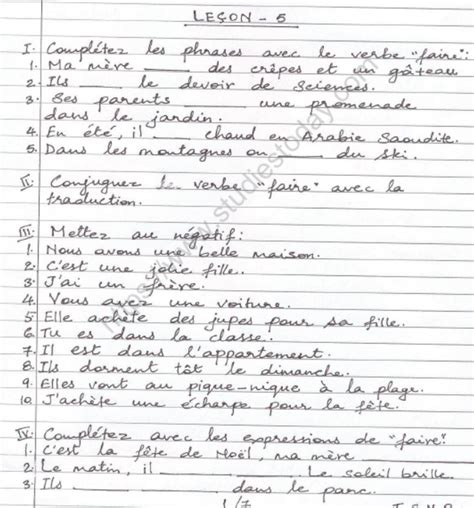 LEÇON - 5
I. Complétez les phrases avec le verbe "faire":
1. Ma mère ______ des crêpes et un gâteau
2. Ils ______ le devoir de Sciences.
3. Ses parents ______ une promenade
dans le jardin.
4. En été, il ______ chaud en Arabie Saoudite.
5. Dans les montagnes on ______ du ski.
II. Conjuguez le verbe "faire" avec la
traduction.
III. Mettez au négatif:
1. Nous avons une belle maison.
2. C'est une jolie fille.
3. J'ai un frère.
4. Vous avez une voiture.
5. Elle achète des jupes pour sa fille.
6. Tu es dans la classe.
7. Il est dans l'appartement.
8. Ils dorment tôt le dimanche.
9. Elles vont au pique-nique à la plage.
10. J'achète une écharpe pour la fête.
IV. Complétez avec les expressions de "faire":
1. C'est la fête de Noël, ma mère ______
2. Le matin, il ______. Le soleil brille.
3. Ils ______ dans le parc.
1/7
https://www.studiestoday.com